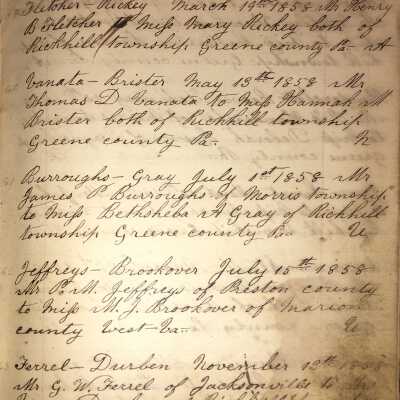 Fletcher - Rickey March 19th 1858 Mr Henry
B Fletcher Miss Mary Rickey both of
Richhill township Greene county Pa A
Vanata - Brister May 13th 1858 Mr
Thomas D Vanata to Miss Hannah M
Brister both of Richhill township
Greene county Pa.
Burroughs - Gray July 1st 1858 Mr
James P Burroughs of Morris township
to Miss Bethsheba A Gray of Richhill
township Greene county Pa
Jeffreys - Brookover July 15th 1858
Mr P. M. Jeffreys of Preston county
to Miss M. J. Brookover of Marion
county West Va
Ferrel - Durben November 13th 1858
Mr G. W. Ferrel of Jacksonville to
Durben